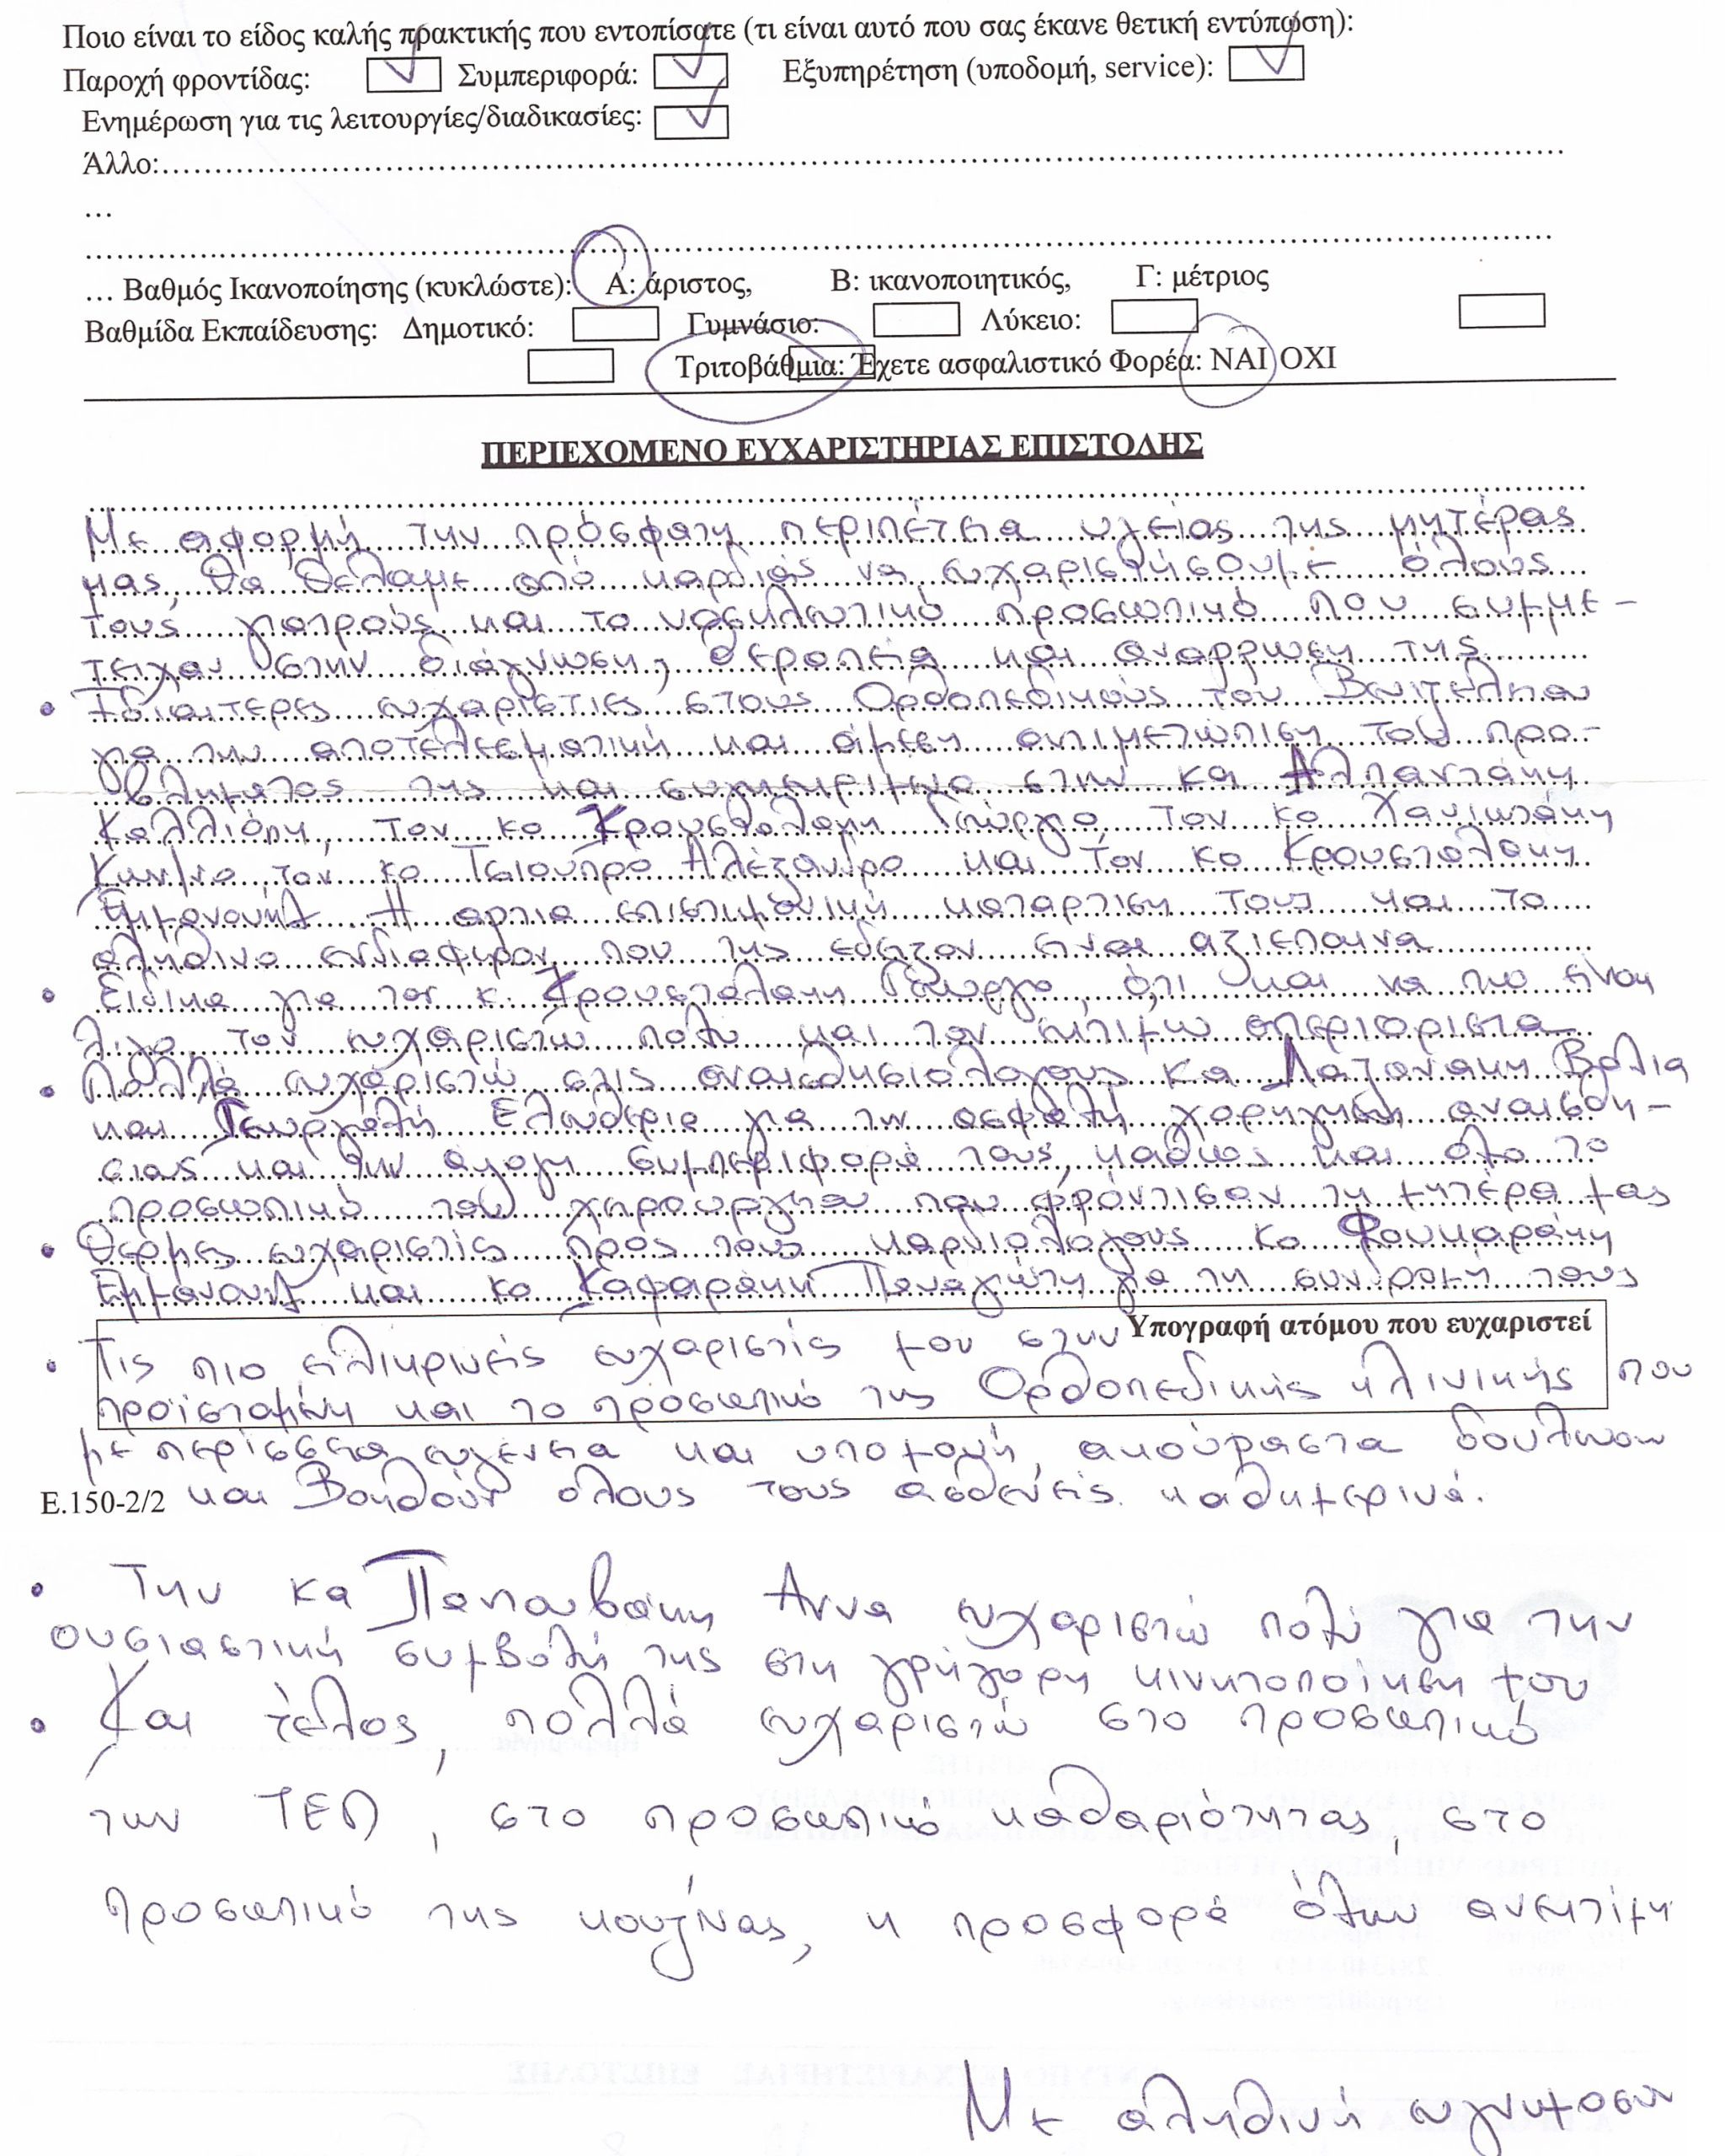 Ποιο είναι το είδος καλής πρακτικής που εντοπίσατε (τι είναι αυτό που σας έκανε θετική εντύπωση):
Παροχή φροντίδας: Συμπεριφορά: Εξυπηρέτηση (υποδομή, service):
Ενημέρωση για τις λειτουργίες/διαδικασίες:
Άλλο:……………………………………………………………………………………
…
……………………………………………………………………………………
… Βαθμός Ικανοποίησης (κυκλώστε): Α: άριστος, Β: ικανοποιητικός, Γ: μέτριος
Βαθμίδα Εκπαίδευσης: Δημοτικό: Γυμνάσιο: Λύκειο:
Τριτοβάθμια: Έχετε ασφαλιστικό Φορέα: ΝΑΙ ΟΧΙ
ΠΕΡΙΕΧΟΜΕΝΟ ΕΥΧΑΡΙΣΤΗΡΙΑΣ ΕΠΙΣΤΟΛΗΣ
Με αφορμή την πρόσφατη περιπέτεια υγείας της μητέρας
μας, θα θέλαμε από καρδιάς να ευχαριστήσουμε όλους
τους γιατρούς και το νοσηλευτικό προσωπικό που συμμε-
τείχαν στην διάγνωση, θεραπεία και αναρρωση της
• Ιδιαιτερες ευχαριστιες στους Ορθοπεδικούς του Βενιζελειου
για την αποτελεσματική και άμεση αντιμετώπιση του προ-
βλήματος της και συγκεκριμενα στην κα Αλπαντάκη
Καλλιόπη, τον κο Κρουσταλακη Γεώργιο, τον κο Χανιωτάκη
Κων/νο, τον κο Τσιουπρο Αλέξανδρο και τον κο Κρουσταλακη
Εμμανουήλ. Η αρτια επιστημονική καταρτιση τους και το
αληθινο ενδιαφερον που της εδειξαν ειναι αξιεπαινα
• Ειδικα για τον κ. Κρουσταλακη Γεωργιο, ό,τι και να πω ειναι
λιγο, τον ευχαριστώ πολυ και τον εκτιμω απεριοριστα
• Πολλά ευχαριστώ στις αναισθησιολογους κα Λαζανακη Βολια
και Γεωργαλή Ελευθερια για την ασφαλή χορηγηση αναισθη-
σιας και την αψογη συμπεριφορά τους, καθως και όλο το
προσωπικό του χειρουργειου που φρόντισαν τη μητερα μας
• Θερμες ευχαριστίες προς τους καρδιολογους κο Φουκαράκη
Εμμανουηλ και κο Καφαράκη Παναγιώτη για τη συνδρομή τους
Υπογραφή ατόμου που ευχαριστεί
• Τις πιο ειλικρινείς ευχαριστίες μου στην
προϊσταμένη και το προσωπικό της Ορθοπεδικής κλινικής που
με περίσσεια ευγένεια και υπομονή, ακούραστα δουλευουν
Ε.150-2/2 και Βοηθούν όλους τους ασθενείς καθημερινά.
• Την κα Αννα ευχαριστώ πολύ για την
ουσιαστική συμβολή της στη γρήγορη κινητοποίηση του
• Και τέλος, πολλά ευχαριστώ στο προσωπικό
των ΤΕΠ, στο προσωπικό καθαριότητας, στο
προσωπικό της κουζίνας, η προσφορά όλων ανεκτίμη
Με αληθινή ευγνωμοσυν